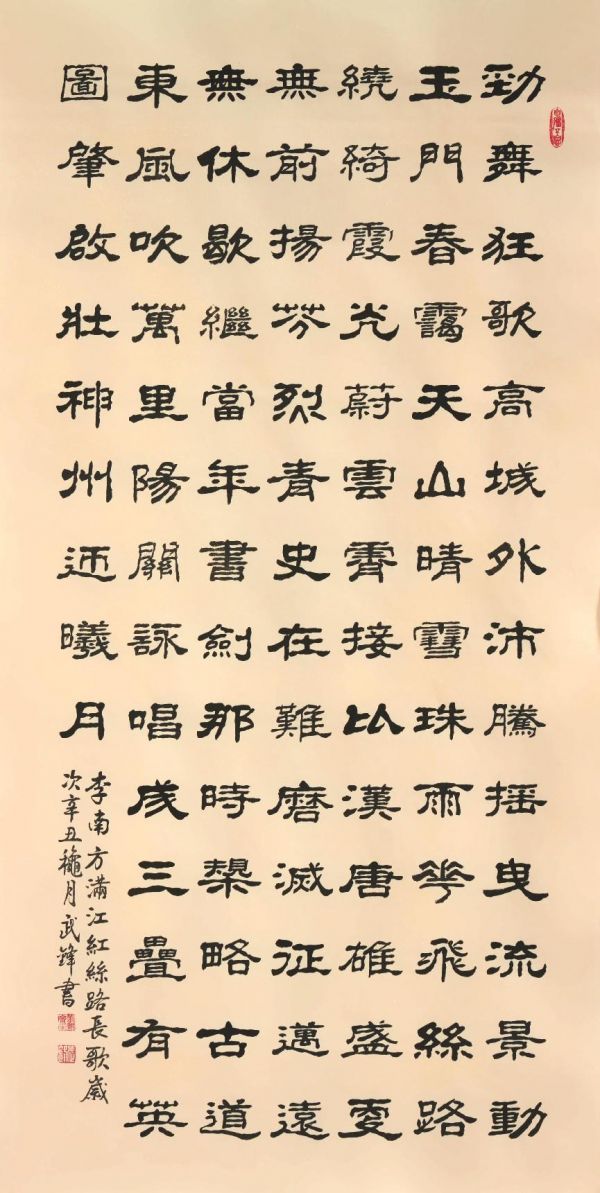 勁舞狂歌高城外沛騰搖曳流景動
玉門春靄天山晴雪珠雨花飛絲路
繞綺霞光蔚雲霽接以漢唐雄盛夐
無前揚芬烈青史在難磨滅征邁遠
無休歇繼當年書劍那時略古道
東風吹萬里陽關詠唱成三疊有英
圖肇啟壯神州迊曦月
李南方滿江紅絲路長歌歲
次辛丑穐月武鋒書